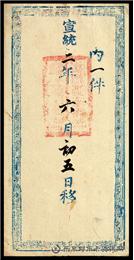 內一件
宣統二年六月初五日移